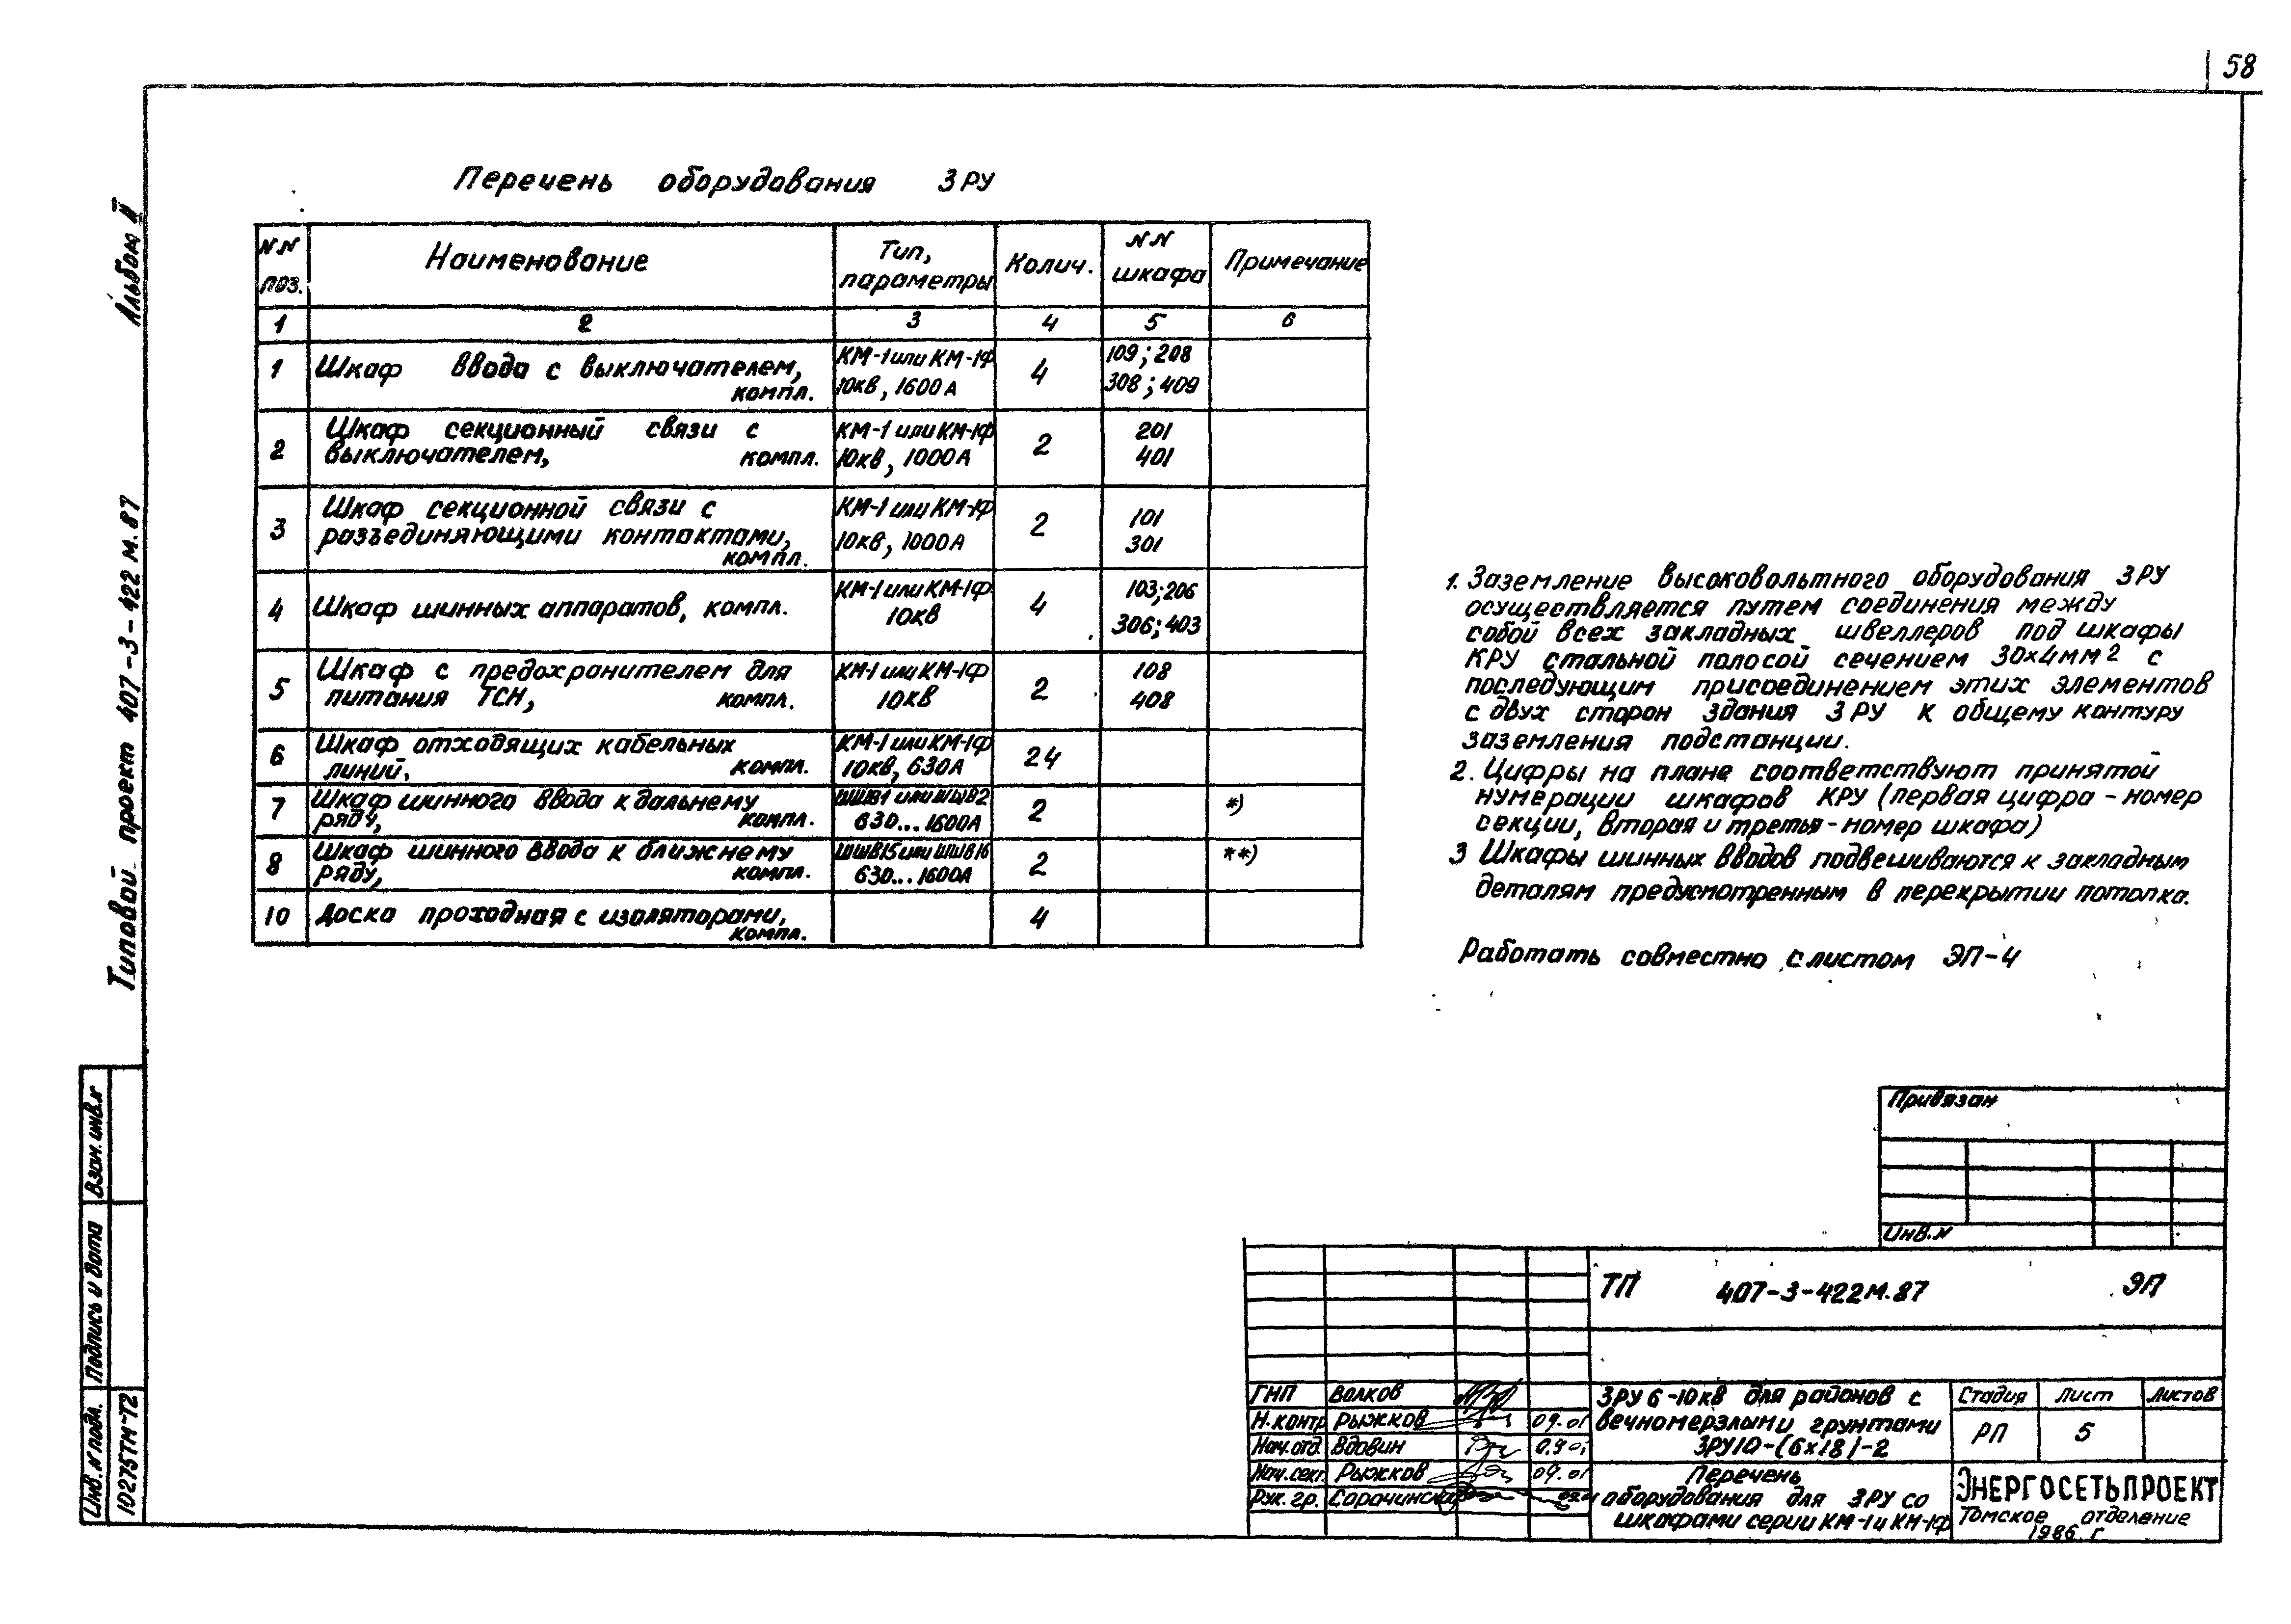 58
Альбом II
Типовой проект 407-3-422 м.87
Перечень оборудования ЗРУ
NN поз.
Наименование
Тип, параметры
Колич.
NN шкафа
Примечание
1 2 3 4 5 6
1 Шкаф ввода с выключателем, компл. КМ-1 или КМ-1Ф 10кв, 1600А 4 109; 208 308; 409
2 Шкаф секционный связи с выключателем, компл. КМ-1 или КМ-1Ф 10кв, 1000А 2 201 401
3 Шкаф секционной связи с разъединяющими контактами, компл. КМ-1 или КМ-1Ф 10кв, 1000А 2 101 301
4 Шкаф шинных аппаратов, компл. КМ-1 или КМ-1Ф 10кв 4 103; 206 306; 403
5 Шкаф с предохранителем для питания ТСН, компл. КМ-1 или КМ-1Ф 10кв 2 108 408
6 Шкаф отходящих кабельных линий, компл. КМ-1 или КМ-1Ф 10кв, 630А 24
7 Шкаф шинного ввода к дальнему ряду, компл. ШШВ1 или ШШВ2 630...1600А 2 *)
8 Шкаф шинного ввода к ближнему ряду, компл. ШШВ15 или ШШВ16 630...1600А 2 **)
10 Доска проходная с изоляторами, компл. 4
1. Заземление высоковольтного оборудования ЗРУ
осуществляется путем соединения между
собой всех закладных швеллеров под шкафы
КРУ стальной полосой сечением 30×4мм2 с
последующим присоединением этих элементов
с двух сторон здания ЗРУ к общему контуру
заземления подстанции.
2. Цифры на плане соответствуют принятой
нумерации шкафов КРУ (первая цифра - номер
секции, вторая и третья - номер шкафа)
3 Шкафы шинных вводов подвешиваются к закладным
деталям предусмотренным в перекрытии потолка.
Работать совместно с листом ЭП-4
Привязан
Инв.N
ТП 407-3-422м.87 ЭП
ГНП Волков
Н.контр Рыжков 09.01
Нач.отд. Вдовин 0.9 01
Нач.сект. Рыжков 09.01
Рук. гр. Сорочинский
ЗРУ 6-10кв для районов с
вечномерзлыми грунтами
ЗРУ10-(6×18)-2
Стадия Лист Листов
РП 5
Перечень
оборудования для ЗРУ со
шкафами серии КМ-1 и КМ-1Ф
ЭНЕРГОСЕТЬПРОЕКТ
Томское отделение
1986 г
Взам. инв.N
Подпись и дата
Инв. N подл.
10275ТМ-Т2